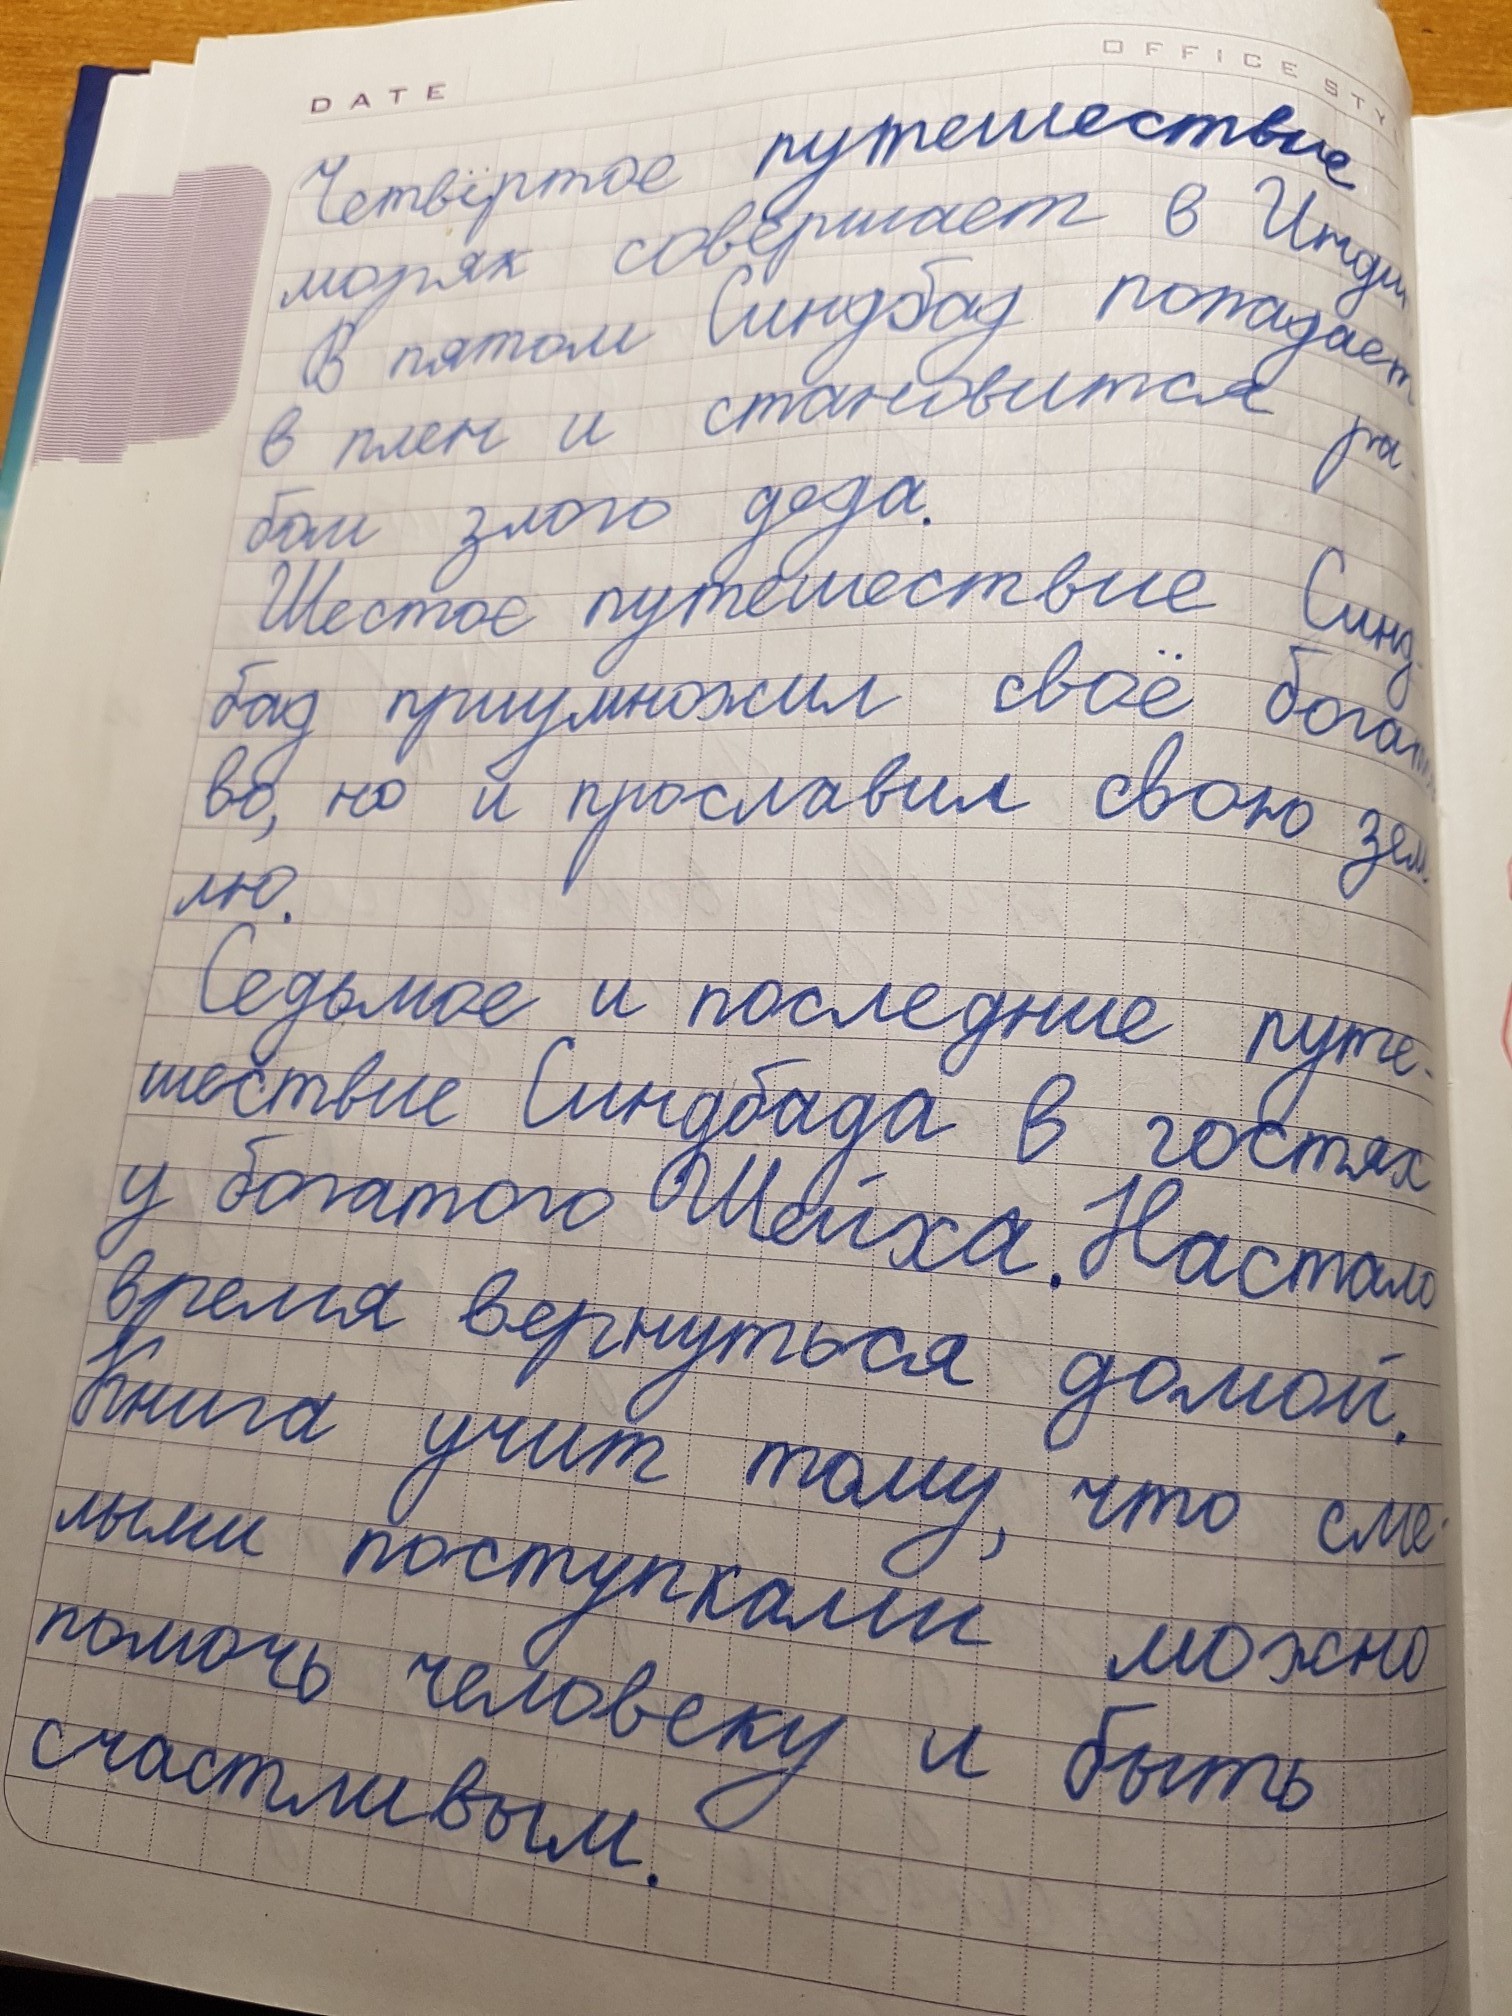 DATE
OFFICE STY
Четвёртое путешествие
моряк совершает в Инди
В пятом Синдбад попадает
в плен и становится ра-
бом злого деда.
Шестое путешествие Синд-
бад приумножил своё богатст
во, но и прославил свою зем-
лю.
Седьмое и последние путе-
шествие Синдбада в гостях
у богатого Шейха. Настало
время вернуться домой.
Книга учит тому, что сме-
лыми поступками можно
помочь человеку и быть
счастливым.